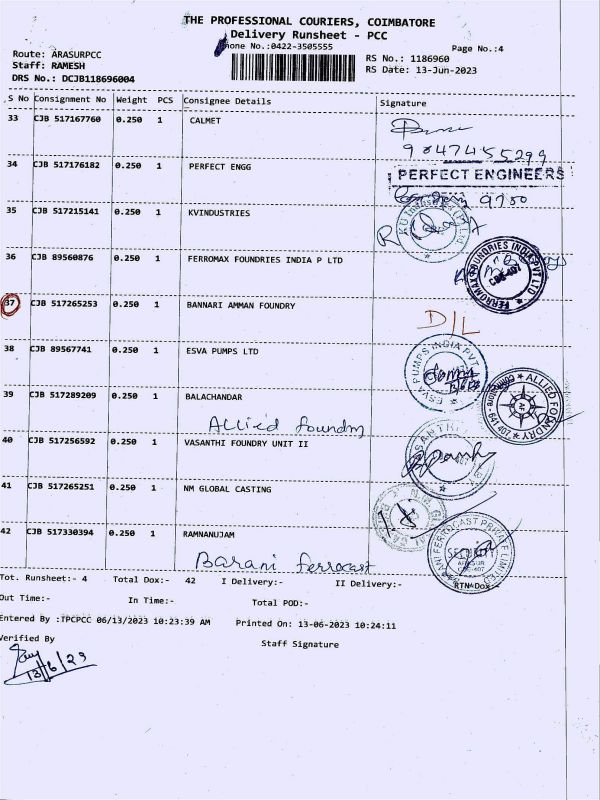 THE PROFESSIONAL COURIERS, COIMBATORE
Delivery Runsheet - PCC
Phone No.:0422-3505555
Page No.:4
Route: ARASURPCC
Staff: RAMESH
DRS No.: DCJB118696004
RS No.: 1186960
RS Date: 13-Jun-2023
S No Consignment No Weight PCS Consignee Details Signature
33 CJB 517167760 0.250 1 CALMET
9847455299
34 CJB 517176182 0.250 1 PERFECT ENGG
PERFECT ENGINEERS
9750
35 CJB 517215141 0.250 1 KVINDUSTRIES
36 CJB 89560876 0.250 1 FERROMAX FOUNDRIES INDIA P LTD
FERROMAX FOUNDRIES INDIA PVT LTD
CBE-407
37 CJB 517265253 0.250 1 BANNARI AMMAN FOUNDRY
D/L
38 CJB 89567741 0.250 1 ESVA PUMPS LTD
ESVA PUMPS INDIA PVT
39 CJB 517289209 0.250 1 BALACHANDAR
Allied foundry
ALLIED FOUNDRY
COIMBATORE - 641 407
40 CJB 517256592 0.250 1 VASANTHI FOUNDRY UNIT II
41 CJB 517265251 0.250 1 NM GLOBAL CASTING
42 CJB 517330394 0.250 1 RAMNANUJAM
Barani ferrocast
BARANI FERROCAST PRIVATE LIMITED
SECURITY
ARASUR
CBE-407
Tot. Runsheet:- 4 Total Dox:- 42 I Delivery:- II Delivery:- RTN Dox
Out Time:- In Time:- Total POD:-
Entered By :TPCPCC 06/13/2023 10:23:39 AM Printed On: 13-06-2023 10:24:11
Verified By Staff Signature
13/6/23